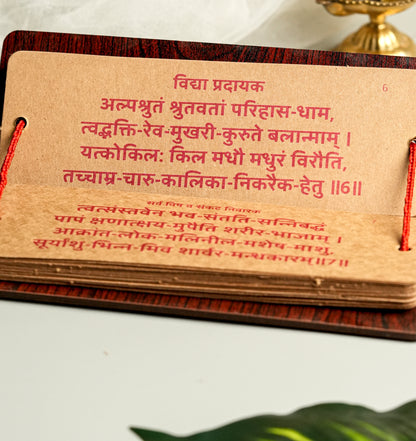 विद्या प्रदायक
6
अल्पश्रुतं श्रुतवतां परिहास-धाम,
त्वद्भक्ति-रेव-मुखरी-कुरुते बलान्माम् ।
यत्कोकिलः किल मधौ मधुरं विरौति,
तच्चाम्र-चारु-कालिका-निकरैक-हेतु ॥6॥
सर्व विष व संकट निवारक
त्वत्संस्तवेन भव-संतति-सन्निबद्धं
पापं क्षणात्क्षय-मुपैति शरीर-भाजाम् ।
आक्रांत-लोक-मलिनील-मशेष-माशु,
सूर्यांशु-भिन्न-मिव शार्वर-मन्धकारम्॥7॥